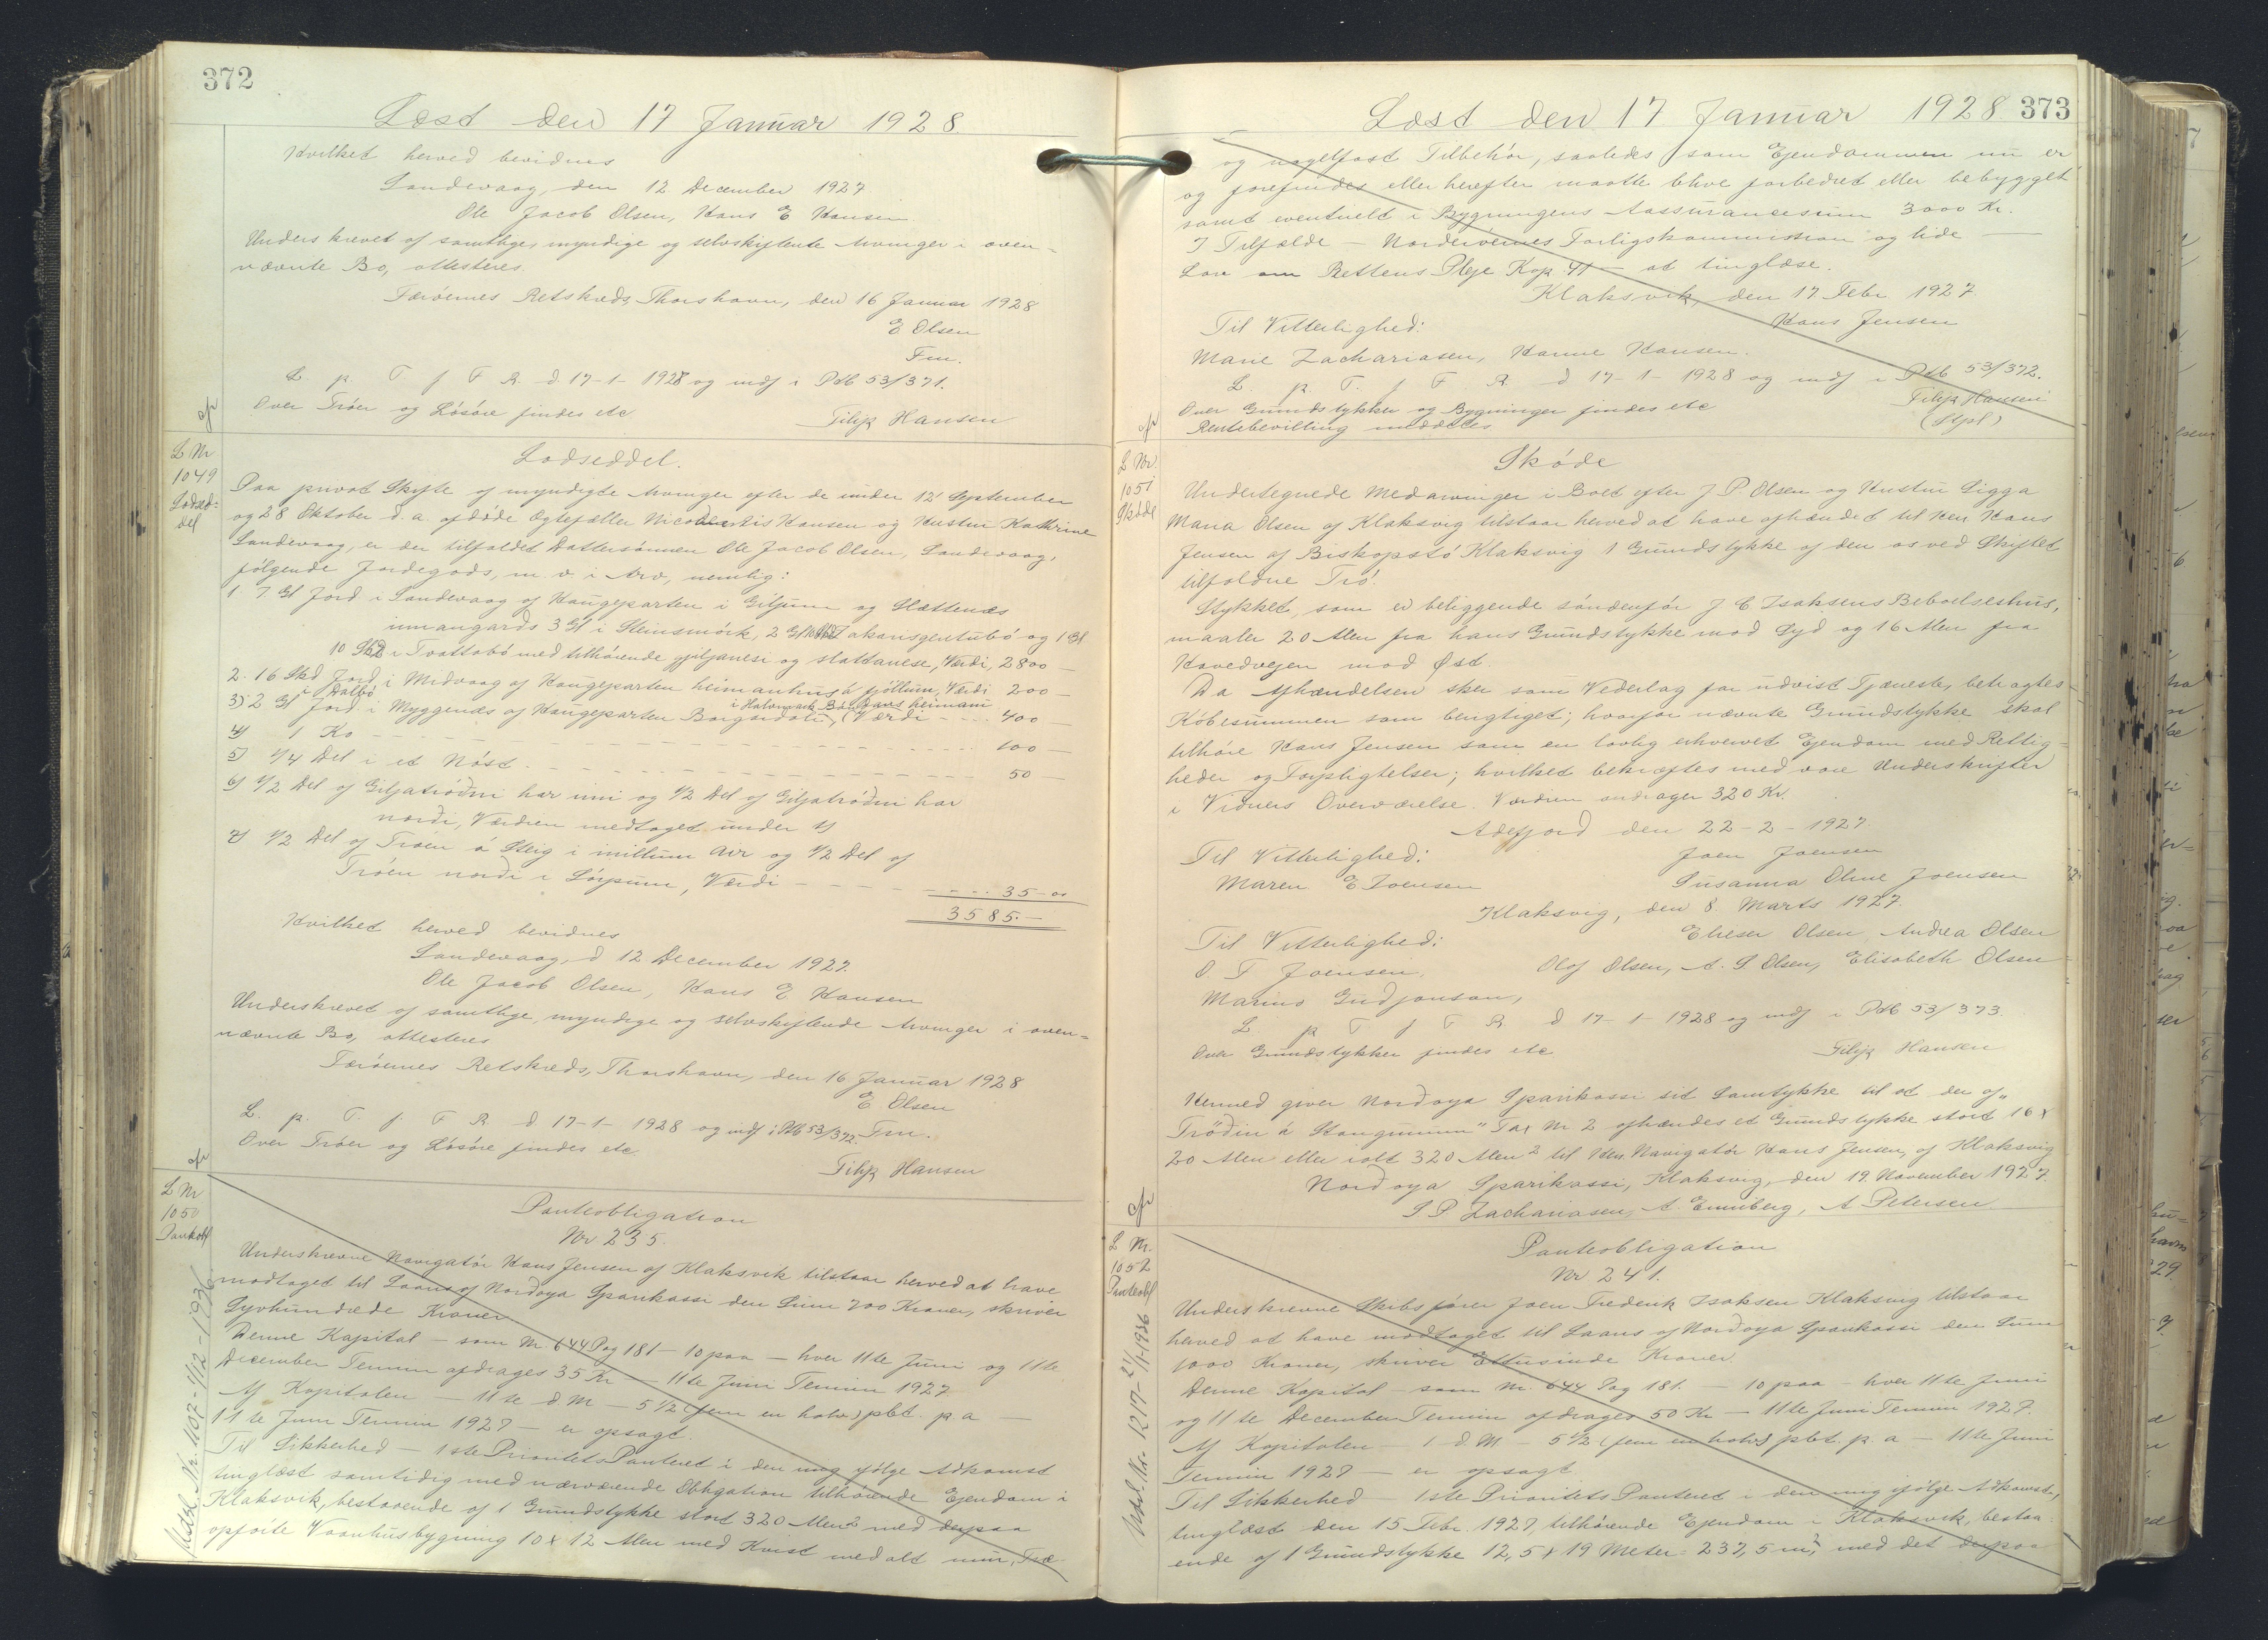 372
Læst den 17 Januar 1928
Hvilket herved bevidnes
Sandevaag, den 12 December 1927
Ole Jacob Olsen, Hans E Hansen
Underskrevet af samtlige, myndige og selvskiftende Arvinger i oven-
nævnte Bo, attesteres.
Færøernes Retskreds, Thorshavn, den 16 Januar 1928
E Olsen
Fm.
L. p. T. f F R. d. 17-1-1928 og indf i Ptb 53/371.
Over Trøer og Løsøre findes etc
Filip Hansen
L Nr
1049
Lodsed-
del
Lodseddel.
Paa privat Skifte af myndigte Arvinger efter de under 12 September
og 28 Oktober d. a. afdøde Ægtefæller Hansen og Hustru Kathrine
Sandevaag, er der tilfaldet Dattersønnen Ole Jacob Olsen, Sandevaag,
følgende Jordegods, m. v. i Arv, nemlig:
1. 7 Gl Jord i Sandevaag af Kongeparten i Giljum og Slættenæs
innangards 3 Gl i Steinsmörk, 2 Gl og 1 Gl
10 Skd i Tvattabö med tilhørende giljanesi og slattanese, Værdi, 2800 —
2. 16 Skd Jord i Midvaag af Kongeparten heimanhus á fjöllum, Værdi 200 —
i Dalbö i Halvmark heimani
3) 2 Gl Jord i Myggenæs af Kongeparten Borgardalu, (Værdi - - - 400 —
4) 1 Ko - - - 100 —
5) 1/4 Del i et Nøst. - - - 50 —
6) 1/2 Del af Giljatröðni har inni og 1/2 Del af Giljatröðni har
norði, Værdien medtaget under 1)
7) 1/2 Del af Tröen á Steig i millum áir og 1/2 Del af
Tröen norði i Lörpum, Værdi - - - 35-00
3585.—
Hvilket herved bevidnes
Sandevaag, d 12 December 1927.
Ole Jacob Olsen, Hans E Hansen
Underskrevet af samtlige, myndige og selvskiftende Arvinger i oven=
nævnte Bo, attesteres
Færøernes Retskreds, Thorshavn, den 16 Januar 1928
E Olsen
Fm.
L. p. T. f. F R. d 17-1-1928 og indf i Ptb 53/372.
Over Trøer og Løsøre findes etc
Filip Hansen
L Nr
1050
Pantobl
Udsl. Nr. 1107 - 1/12-1936
Panteobligation
Nr 235.
Underskrevne Navigatør Hans Jensen af Klaksvik tilstaar herved at have
modtaget til Laans af Norðoya Sparikassi den Sum 700 Kroner, skriver
Syvhundrede Kroner
Denne Kapital — som Nr 644 Pag 181 — 10 paa — hver 11te Juni og 11te
December Termin afdrages 35 Kr — 11te Juni Termin 1927
Af Kapitalen — 11te d M — 5 1/2 (fem en halv) pCt. p a —
11te Juni Termin 1927 — er opsagt.
Til Sikkerhed — 1ste Prioritets Panteret i den mig ifølge Adkomst
tinglæst samtidig med nærværende Obligation tilhørende Ejendom i
Klaksvik, bestaaende af 1 Grundstykke stort 320 Alen² med derpaa
opførte Vaanhusbygning 10 x 12 Alen med Kvist med alt mur, Træ-
373
Læst den 17 Januar 1928.
og nagelfast Tilbehør, saaledes som Ejendommen nu er
og forefindes eller herefter maatte blive forbedret eller bebygget
samt eventuelt i Bygningens Assurancesum 3000 Kr.
I Tilfælde — Norderøernes Forligskommission og lide —
Lov om Rettens Pleje Kap. 41 — at tinglæse.
Klaksvik, den 17 Febr 1927.
Hans Jensen
Til Vitterlighed:
Marie Zachariasen, Hanne Hansen.
L. p. T. f F R. d 17-1-1928 og indf i Ptb 53/372.
Over Grundstykker og Bygninger findes etc
Filip Hansen
Rentebevilling meddeles
(Stpl)
L Nr.
1051
Skøde
Skøde
Undertegnede Medarvinger i Boet efter J P Olsen og Hustru Sigga
Maria Olsen af Klaksvig tilstaar herved at have afhændet til Herr Hans
Jensen af Biskopstø Klaksvig 1 Grundstykke af den os ved Skiftet
tilfaldne Trø.
Stykket, som er beliggende søndenfor J C Isaksens Beboelseshus,
maaler 20 Alen fra hans Grundstykke mod Syd og 16 Alen fra
Hovedvejen mod Øst.
Da Afhændelsen sker som Vederlag for udvist Tjeneste, betragtes
Købesummen som berigtiget; hvorfor nævnte Grundstykke skal
tilhøre Hans Jensen som en lovlig erhvervet Ejendom med Rettig-
heder og Forpligtelser; hvilket bekræftes med vore Underskrifter
i Vidners Overværelse. Værdien andrager 320 Kr.
Adefjord den 22-2-1927.
Til Vitterlighed:
Joen Joensen
Maren E Joensen
Susanna Oline Joensen
Klaksvig, den 8. Marts 1927.
Til Vitterlighed:
Elieser Olsen, Andrea Olsen
O. F Joensen.
Olaf Olsen, A. S Olsen, Elisabeth Olsen
Marino Gudjonson,
L. p T f F R. d 17-1-1928 og indf i Ptb 53/373.
Over Grundstykker findes etc
Filip Hansen
Hermed giver Norðoya Sparikassi sit Samtykke til at der af „
Trøðin á Stongunum" Tax Nr 2 afhændes et Grundstykke stort 16 x
20 Alen eller ialt 320 Alen² til Herr Navigatør Hans Jensen, af Klaksvig
Norðoya Sparikassi, Klaksvig, den 19. November 1927.
J P Zachariasen, A. Enniberg, A Petersen
L Nr.
1052
Panteobl
Udsl. Nr. 1217 - 21/11-1936
Panteobligation
Nr 241.
Underskrevne Skibsfører Joen Frederik Isaksen Klaksvig tilstaar
herved at have modtaget til Laans af Norðoya Sparikassi den Sum
1000 Kroner, skriver Ettusinde Kroner.
Denne Kapital — som Nr. 644 Pag 181. — 10 paa — hver 11te Juni
og 11te December Termin afdrages 50 Kr — 11te Juni Termin 1927.
Af Kapitalen — 1 d M — 5 1/2 (fem en halv) pCt. p. a — 11te Juni
Termin 1927 — er opsagt
Til Sikkerhed — 1ste Prioritets Panteret i den mig ifølge Adkomst,
tinglæst den 15 Febr. 1927, tilhørende Ejendom i Klaksvik, bestaa-
ende af 1 Grundstykke 12,5 x 19 Meter = 237,5 m², med det derpaa